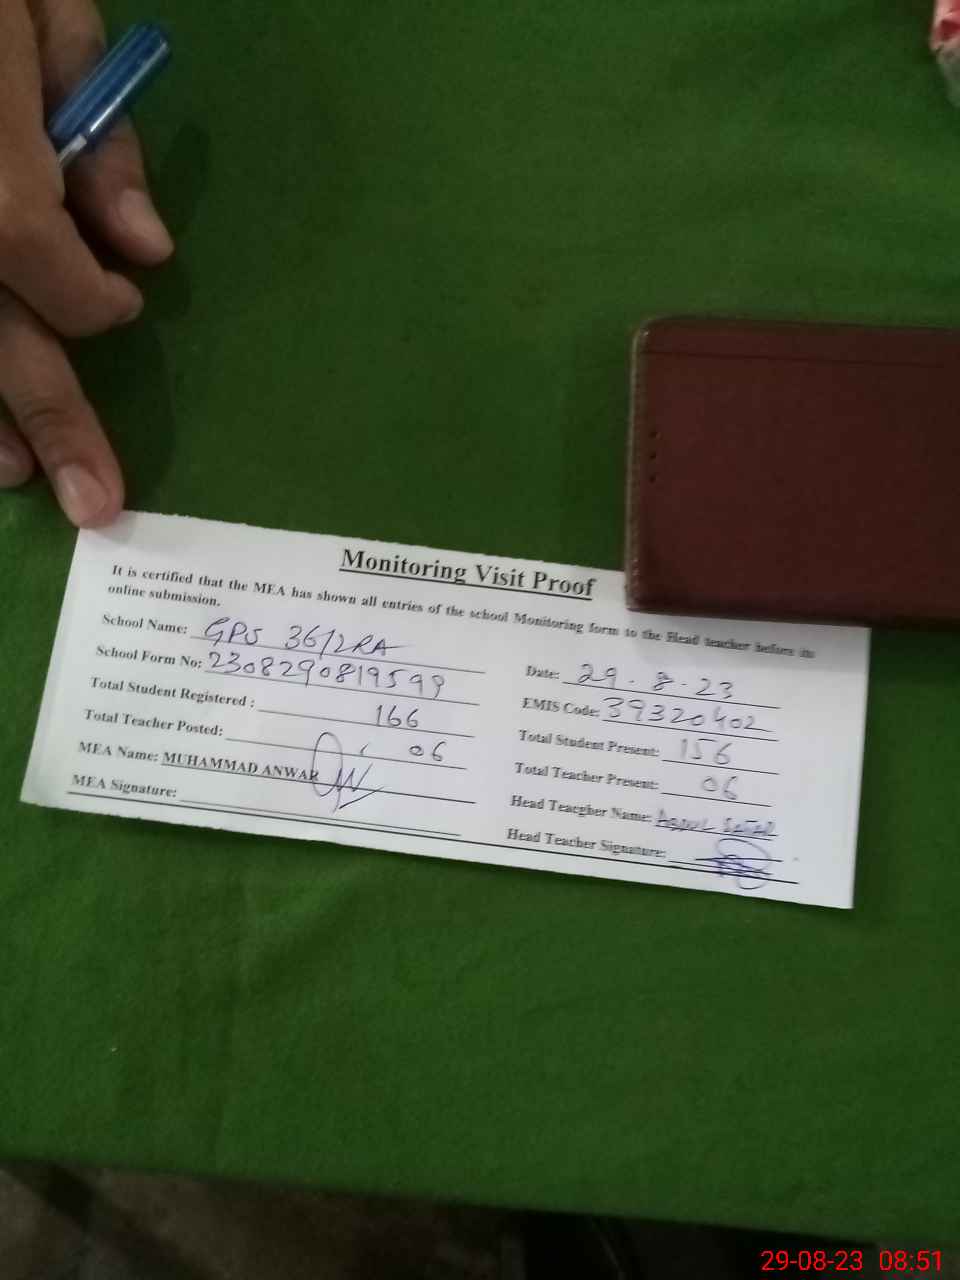 Monitoring Visit Proof
It is certified that the MEA has shown all entries of the school Monitoring form to the Head teacher before its
online submission.
School Name: GPS 36/2RA
Date: 29.8.23
School Form No: 2308290819599
EMIS Code: 39320402
Total Student Registered : 166
Total Student Present: 156
Total Teacher Posted: 06
Total Teacher Present: 06
MEA Name: MUHAMMAD ANWAR
Head Teacgher Name: ABDUL SATAR
MEA Signature:
Head Teacher Signature:
29-08-23 08:51